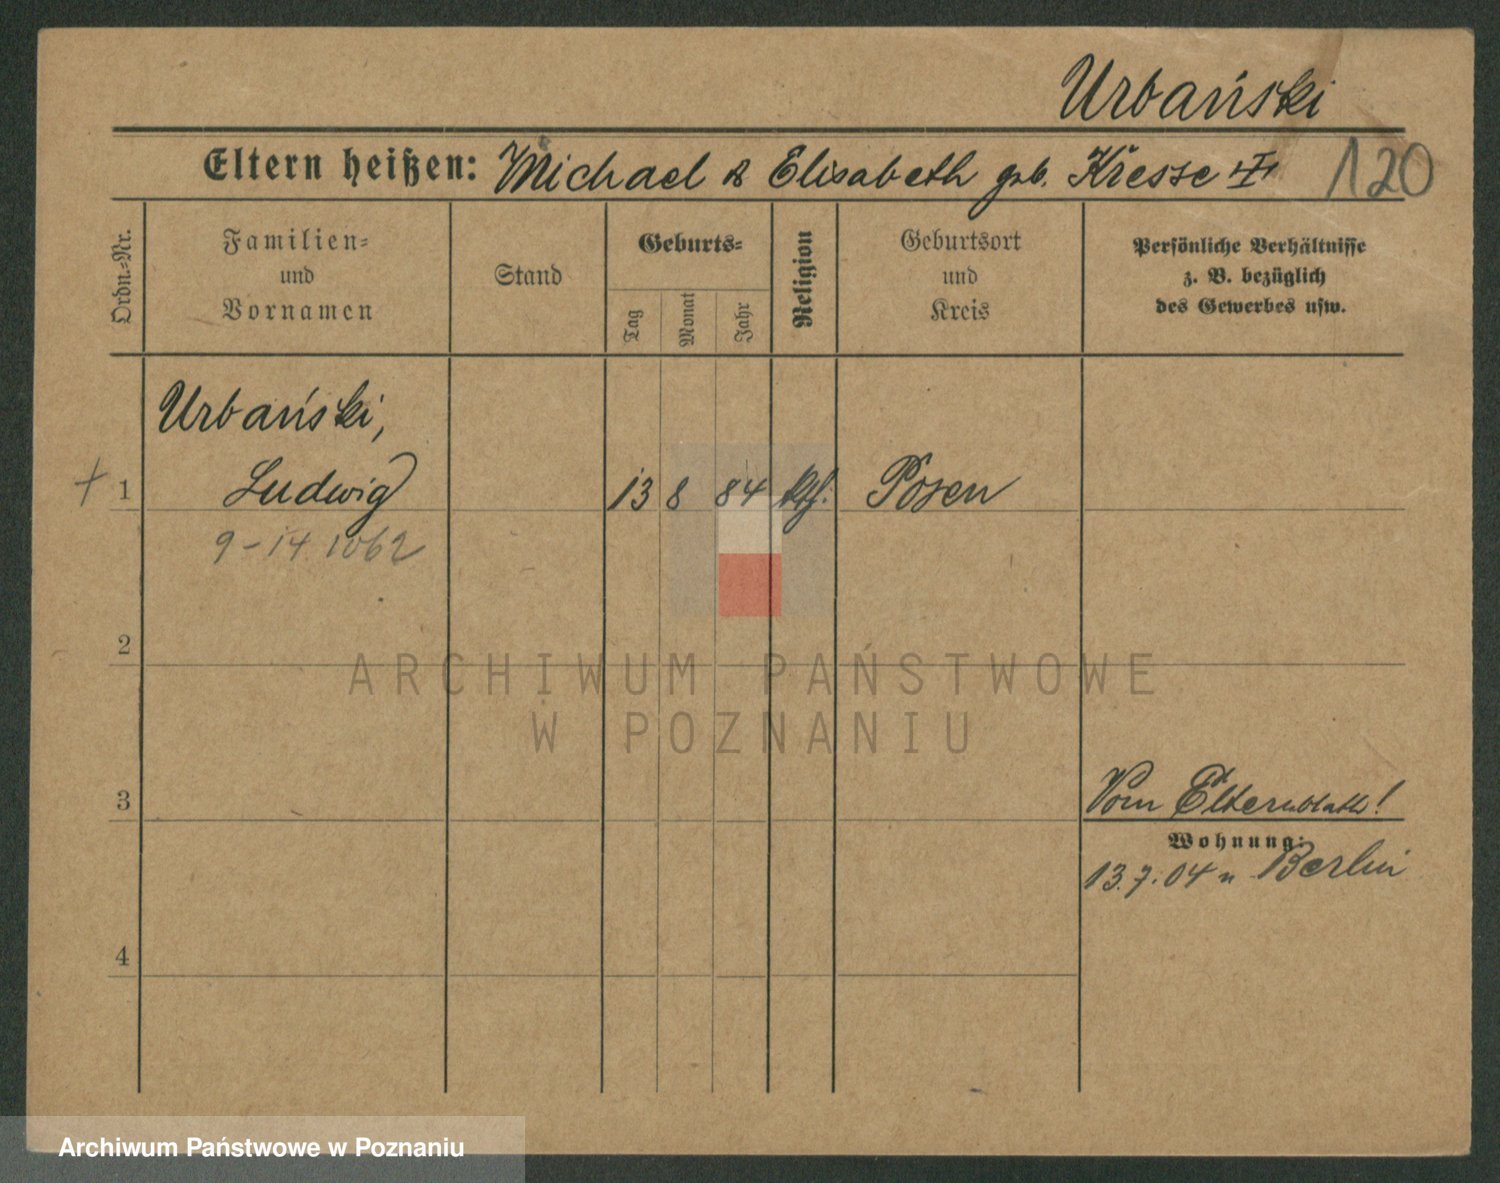 Urbański
Eltern heißen: Michael & Elisabeth geb. Kresse
120
Ordn.-Nr.
Familien-
und
Vornamen
Stand
Geburts-
Tag
Monat
Jahr
Religion
Geburtsort
und
Kreis
Persönliche Verhältnisse
z. B. bezüglich
des Gewerbes usw.
Urbański,
+ 1 Ludwig 13 8 84 kth. Posen
9-14 1062
2
ARCHIWUM PAŃSTWOWE
W POZNANIU
3
Vom Elternblatt!
Wohnung:
13.7.04 n Berlin
4
Archiwum Państwowe w Poznaniu